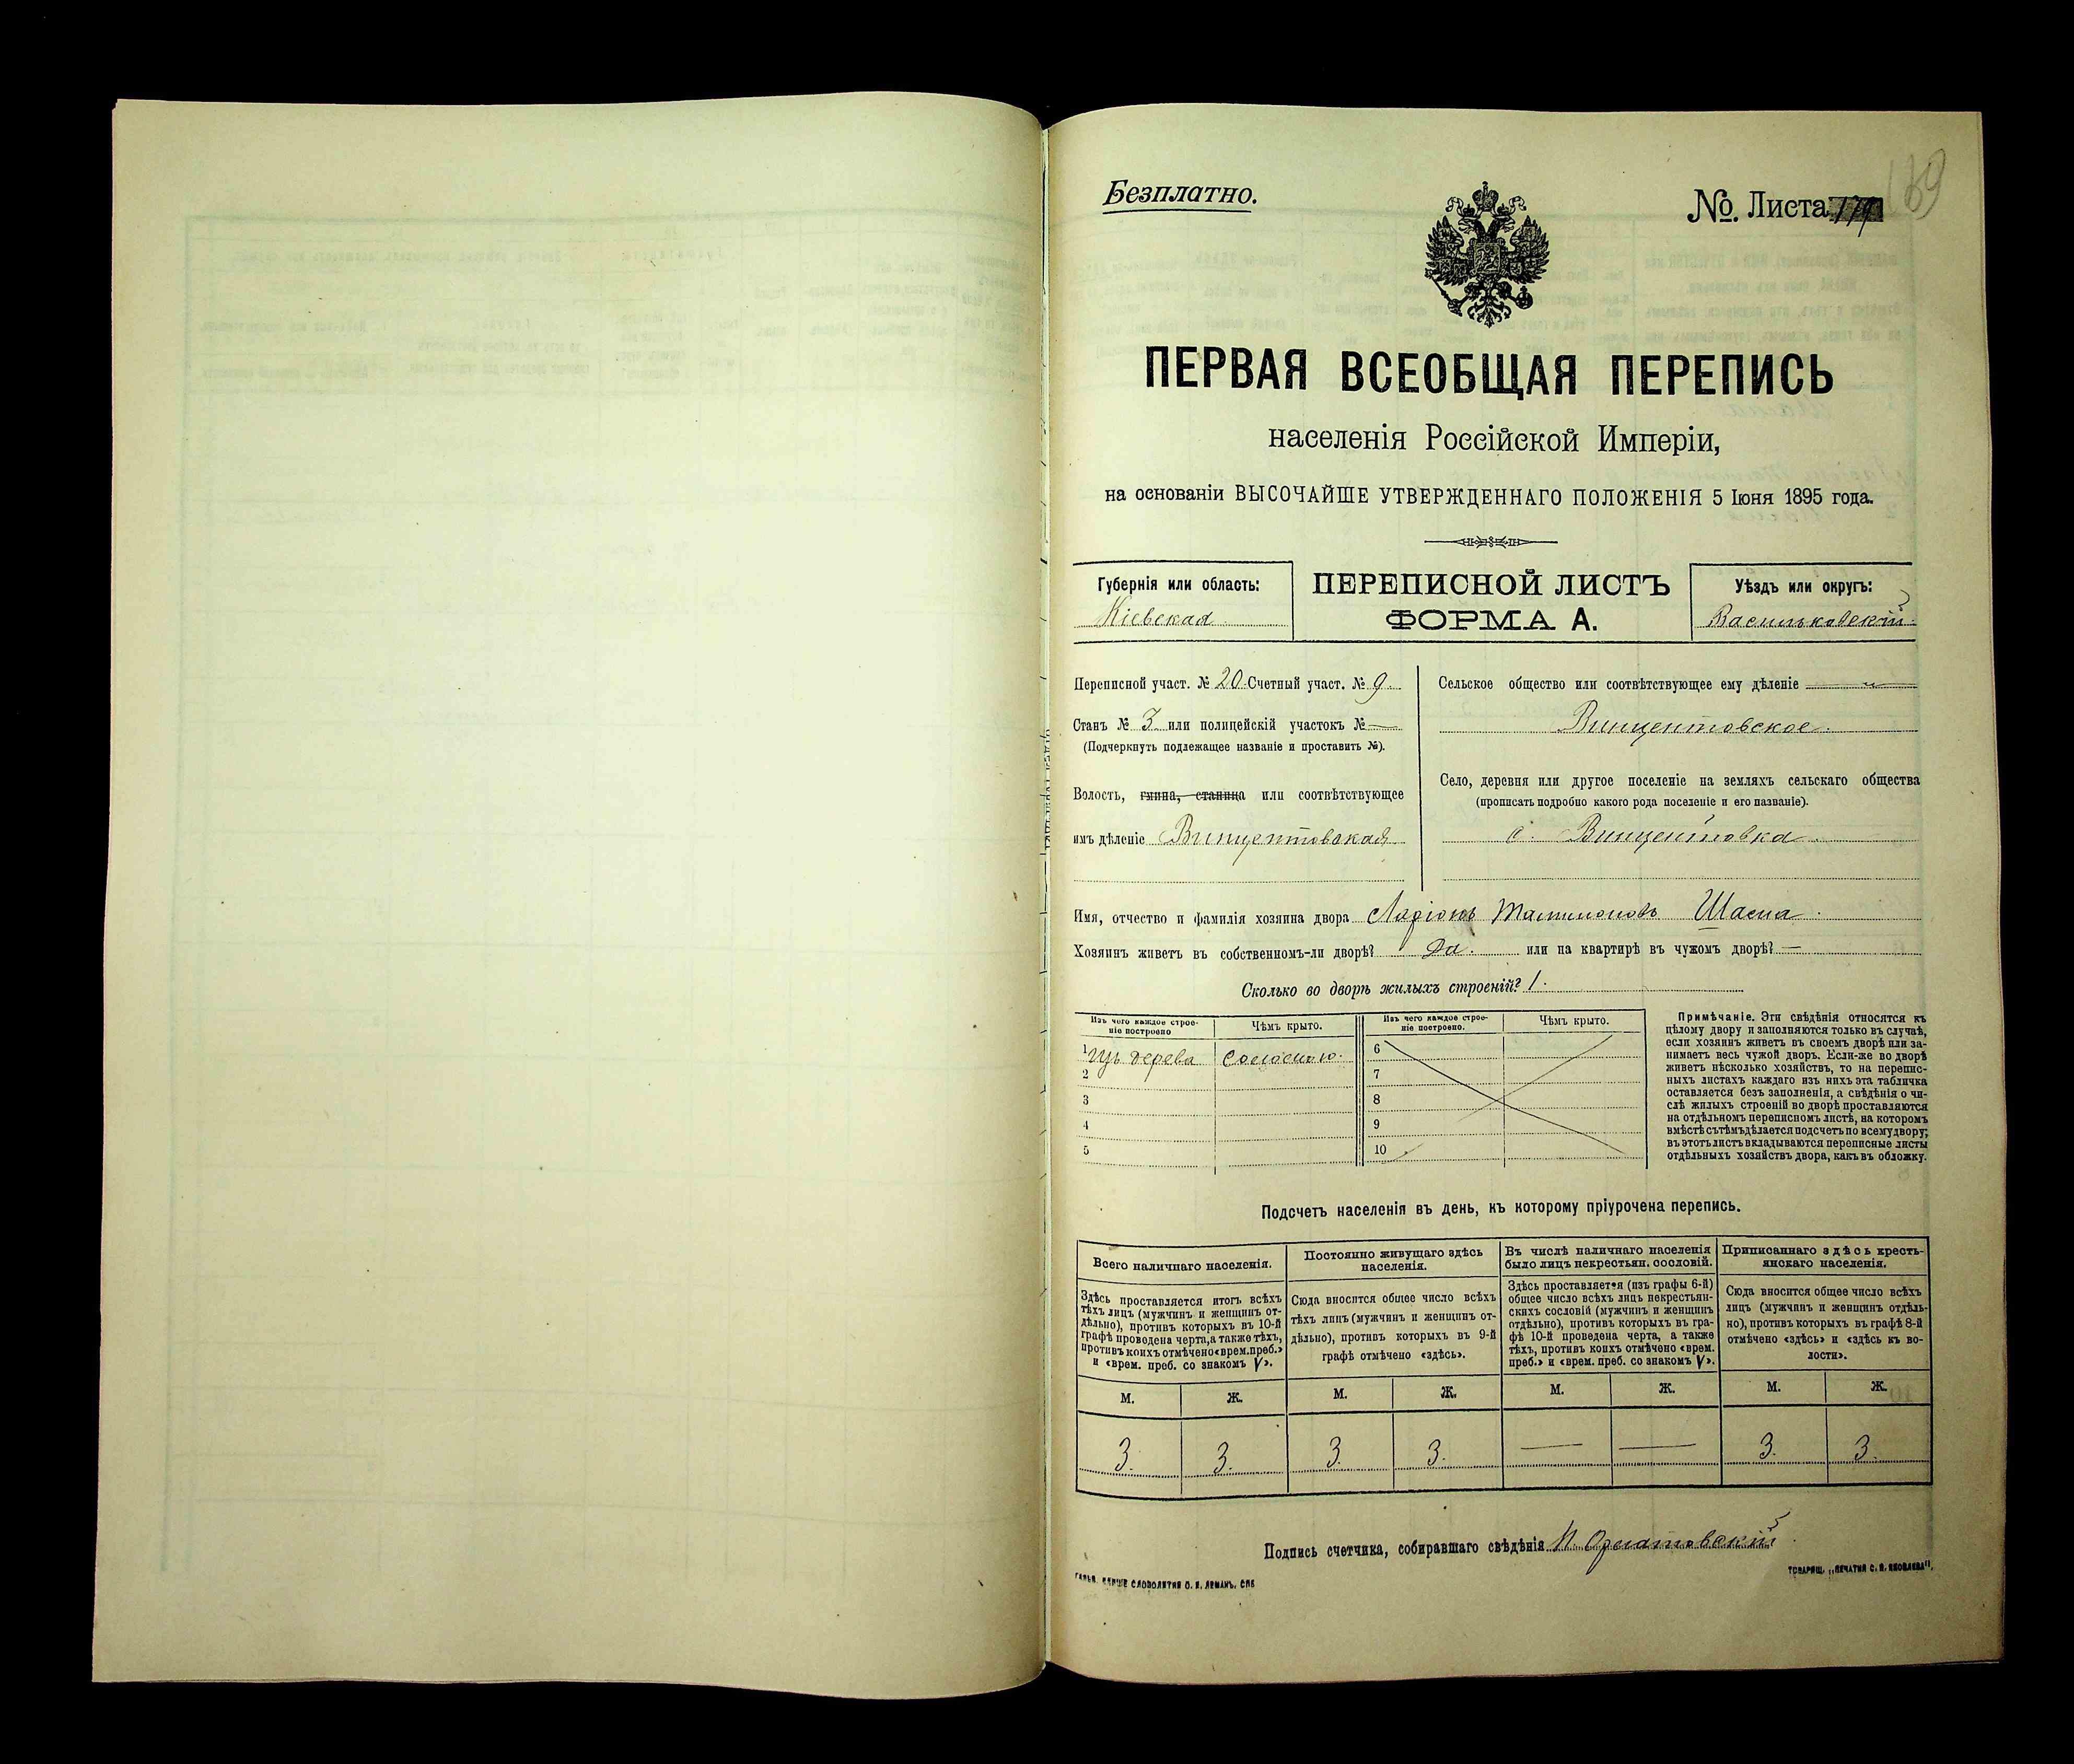 169
Безплатно.
№. Листа 179
ПЕРВАЯ ВСЕОБЩАЯ ПЕРЕПИСЬ
населенія Россійской Имперіи,
на основаніи ВЫСОЧАЙШЕ УТВЕРЖДЕННАГО ПОЛОЖЕНІЯ 5 Іюня 1895 года.
Губернія или область:
Кіевская
ПЕРЕПИСНОЙ ЛИСТЪ
ФОРМА А.
Уѣздъ или округъ:
Васильковскій
Переписной участ. № 20. Счетный участ. № 9.
Станъ № 3 или полицейскій участокъ № —
(Подчеркнуть подлежащее названіе и проставить №).
Волость, гмина, станица или соотвѣтствующее
имъ дѣленіе Винцентовская
Сельское общество или соотвѣтствующее ему дѣленіе
Винцентовское.
Село, деревня или другое поселеніе на земляхъ сельскаго общества
(прописать подробно какого рода поселеніе и его названіе).
с. Винцентовка
Имя, отчество и фамилія хозяина двора Ларіонъ Шасма.
Хозяинъ живетъ въ собственномъ-ли дворѣ? Да. или на квартирѣ въ чужомъ дворѣ? —
Сколько во дворѣ жилыхъ строеній? 1.
Изъ чего каждое строе-
ніе построено
Чѣмъ крыто.
Изъ чего каждое строе-
ніе построено.
Чѣмъ крыто.
1 Изъ дерева Соломою.
2
3
4
5
6
7
8
9
10
Примѣчаніе. Эти свѣдѣнія относятся къ
цѣлому двору и заполняются только въ случаѣ,
если хозяинъ живетъ въ своемъ дворѣ или за-
нимаетъ весь чужой дворъ. Если-же во дворѣ
живетъ нѣсколько хозяйствъ, то на перепис-
ныхъ листахъ каждаго изъ нихъ эта табличка
оставляется безъ заполненія, а свѣдѣнія о чи-
слѣ жилыхъ строеній во дворѣ проставляются
на отдѣльномъ переписномъ листѣ, на которомъ
вмѣстѣ съ тѣмъ дѣлается подсчетъ по всему двору;
въ этотъ листъ вкладываются переписные листы
отдѣльныхъ хозяйствъ двора, какъ въ обложку.
Подсчетъ населенія въ день, къ которому пріурочена перепись.
Всего наличнаго населенія.
Здѣсь проставляется итогъ всѣхъ
тѣхъ лицъ (мужчинъ и женщинъ от-
дѣльно), противъ которыхъ въ 10-й
графѣ проведена черта, а также тѣхъ,
противъ коихъ отмѣчено «врем. преб.»
и «врем. преб. со знакомъ V».
Постоянно живущаго здѣсь
населенія.
Сюда вносится общее число всѣхъ
тѣхъ лицъ (мужчинъ и женщинъ от-
дѣльно), противъ которыхъ въ 9-й
графѣ отмѣчено «здѣсь».
Въ числѣ наличнаго населенія
было лицъ некрестьян. сословій.
Здѣсь проставляется (изъ графы 6-й)
общее число всѣхъ лицъ некрестьян-
скихъ сословій (мужчинъ и женщинъ
отдѣльно), противъ которыхъ въ гра-
фѣ 10-й проведена черта, а также
тѣхъ, противъ коихъ отмѣчено «врем.
преб.» и «врем. преб. со знакомъ V».
Приписаннаго здѣсь кресть-
янскаго населенія.
Сюда вносится общее число всѣхъ
лицъ (мужчинъ и женщинъ отдѣль-
но), противъ которыхъ въ графѣ 8-й
отмѣчено «здѣсь» и «здѣсь къ во-
лости».
М. Ж. М. Ж. М. Ж. М. Ж.
3. 3. 3. 3. — — 3. 3.
Подпись счетчика, собиравшаго свѣдѣнія
СЛОВОЛИТНЯ О. И. ЛЕМАНЪ, СПБ
ТОВАРИЩ. „ПЕЧАТНЯ С. П. ЯКОВЛЕВА".